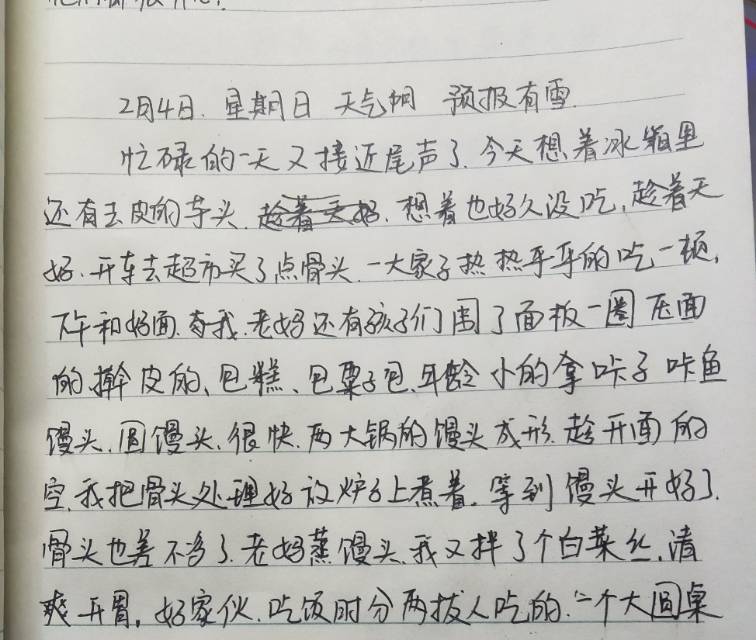 2月4日.星期日 天气阴 预报有雪.
忙碌的一天又接近尾声了.今天想着冰箱里
还有去皮的芋头.趁着天好.想着也好久没吃,趁着天
好.开车去超市买了点骨头.一大家子热热乎乎的吃一顿,
下午和好面.有我.老妈还有孩子们围了面板一圈压面
的擀皮的、包糕、包粟子包.年龄小的拿咔子咔鱼
馒头.圆馒头.很快.两大锅的馒头成形.趁开面的
空.我把骨头处理好放炉子上煮着.等到馒头开好了.
骨头也差不多了.老妈蒸馒头.我又拌了个白菜丝.清
爽开胃.好家伙.吃饭时分两拨人吃的.一个大圆桌